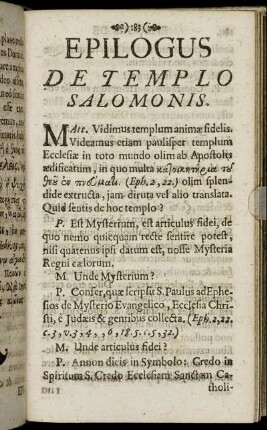 183
EPILOGUS
DE TEMPLO
SALOMONIS.
MAtt. Vidimus templum animæ fidelis.
Videamus etiam paulisper templum
Ecclesiæ in toto mundo olim ab Apostolis
ædificatum, in quo multa κατοικητήρια τῦ
ἐν (Eph. 2, 22.) olim splen-
dide extructa, jam diruta vel alio translata.
Quid sentis de hoc templo?
P. Est Mysterium, est articulus fidei, de
quo nemo quicquam recte sentire potest,
nisi quatenus ipsi datum est, nosse Mysteria
Regni cælorum.
M. Unde Mysterium?
P. Confer, quæ scripsit S. Paulus ad Ephe-
sios de Mysterio Evangelico, Ecclesia Chri-
sti, è Judæis & gentibus collecta. (Eph. 2, 22.
c. 3, v. 3, 4, 6, 18. 5. c. 5, 32.)
M. Unde articulus fidei?
P. Annon dicis in Symbolo: Credo in
Spiritum S. Credo Ecclesiam Sanctam Ca-
tholi-